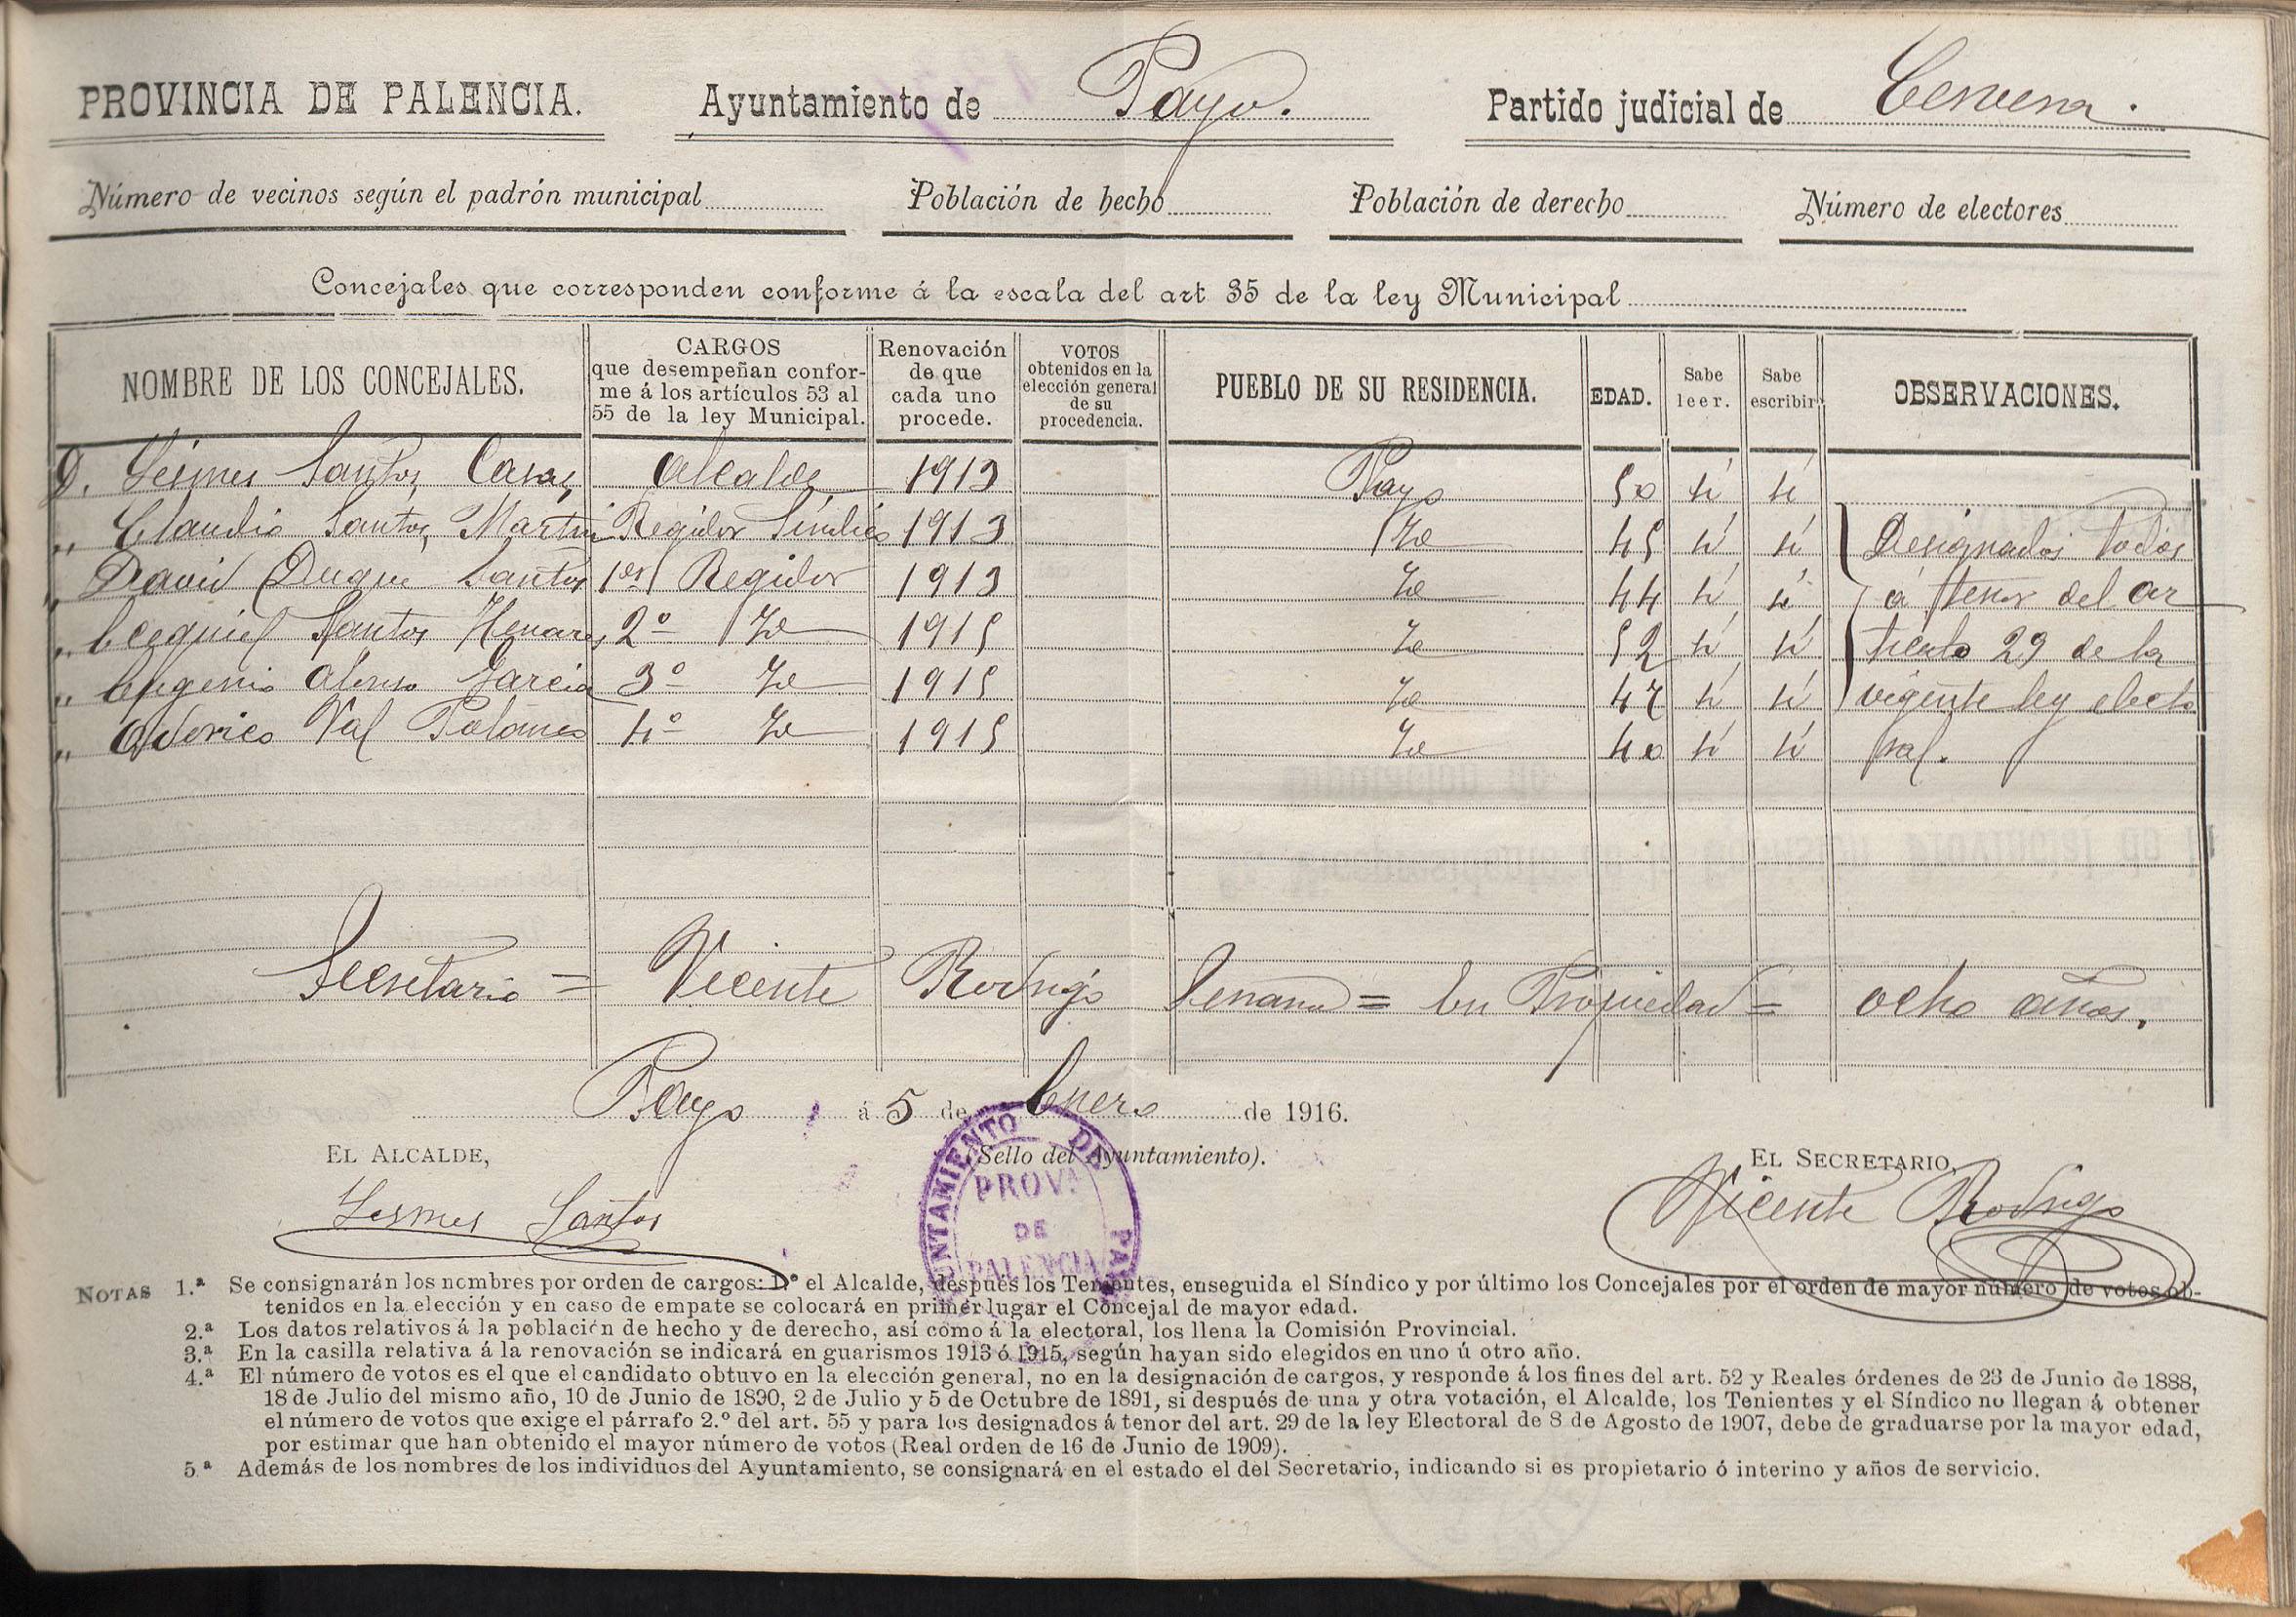 PROVINCIA DE PALENCIA. Ayuntamiento de Payo. Partido judicial de Cervera.
Número de vecinos según el padrón municipal Población de hecho Población de derecho Número de electores
Concejales que corresponden conforme á la escala del art 35 de la ley Municipal
NOMBRE DE LOS CONCEJALES. CARGOS que desempeñan conforme á los artículos 53 al 55 de la ley Municipal. Renovación de que cada uno procede. VOTOS obtenidos en la elección general de su procedencia. PUEBLO DE SU RESIDENCIA. EDAD. Sabe leer. Sabe escribir. OBSERVACIONES.
D. Lesmes Santos Casas Alcalde 1913 Payo 50 sí sí
„ Claudio Santos Martin Regidor Síndico 1913 Id 45 sí sí Designados todos
„ David Duque Santos 1er Regidor 1913 Id 44 sí sí á tenor del ar
„ Ecequiel Santos Henares 2º Id 1915 Id 52 sí sí ticulo 29 de la
„ Eugenio Alonso Garcia 3º Id 1915 Id 47 sí sí vigente ley electo
„ Oderico Val 4º Id 1915 Id 40 sí sí ral.
Secretario = Vicente Rodrigo = En Propiedad = ocho años.
Payo á 5 de Enero de 1916.
EL ALCALDE, (Sello del Ayuntamiento). EL SECRETARIO,
Lesmes Santos Vicente Rodrigo
AYUNTAMIENTO DE PAYO
PROV.ª
DE
PALENCIA
NOTAS 1.ª Se consignarán los nombres por orden de cargos: 1.º el Alcalde, después los Tenientes, enseguida el Síndico y por último los Concejales por el orden de mayor número de votos ob-
tenidos en la elección y en caso de empate se colocará en primer lugar el Concejal de mayor edad.
2.ª Los datos relativos á la población de hecho y de derecho, así como á la electoral, los llena la Comisión Provincial.
3.ª En la casilla relativa á la renovación se indicará en guarismos 1913 ó 1915, según hayan sido elegidos en uno ú otro año.
4.ª El número de votos es el que el candidato obtuvo en la elección general, no en la designación de cargos, y responde á los fines del art. 52 y Reales órdenes de 23 de Junio de 1888,
18 de Julio del mismo año, 10 de Junio de 1890, 2 de Julio y 5 de Octubre de 1891, si después de una y otra votación, el Alcalde, los Tenientes y el Síndico no llegan á obtener
el número de votos que exige el párrafo 2.º del art. 55 y para los designados á tenor del art. 29 de la ley Electoral de 8 de Agosto de 1907, debe de graduarse por la mayor edad,
por estimar que han obtenido el mayor número de votos (Real orden de 16 de Junio de 1909).
5.ª Además de los nombres de los individuos del Ayuntamiento, se consignará en el estado el del Secretario, indicando si es propietario ó interino y años de servicio.